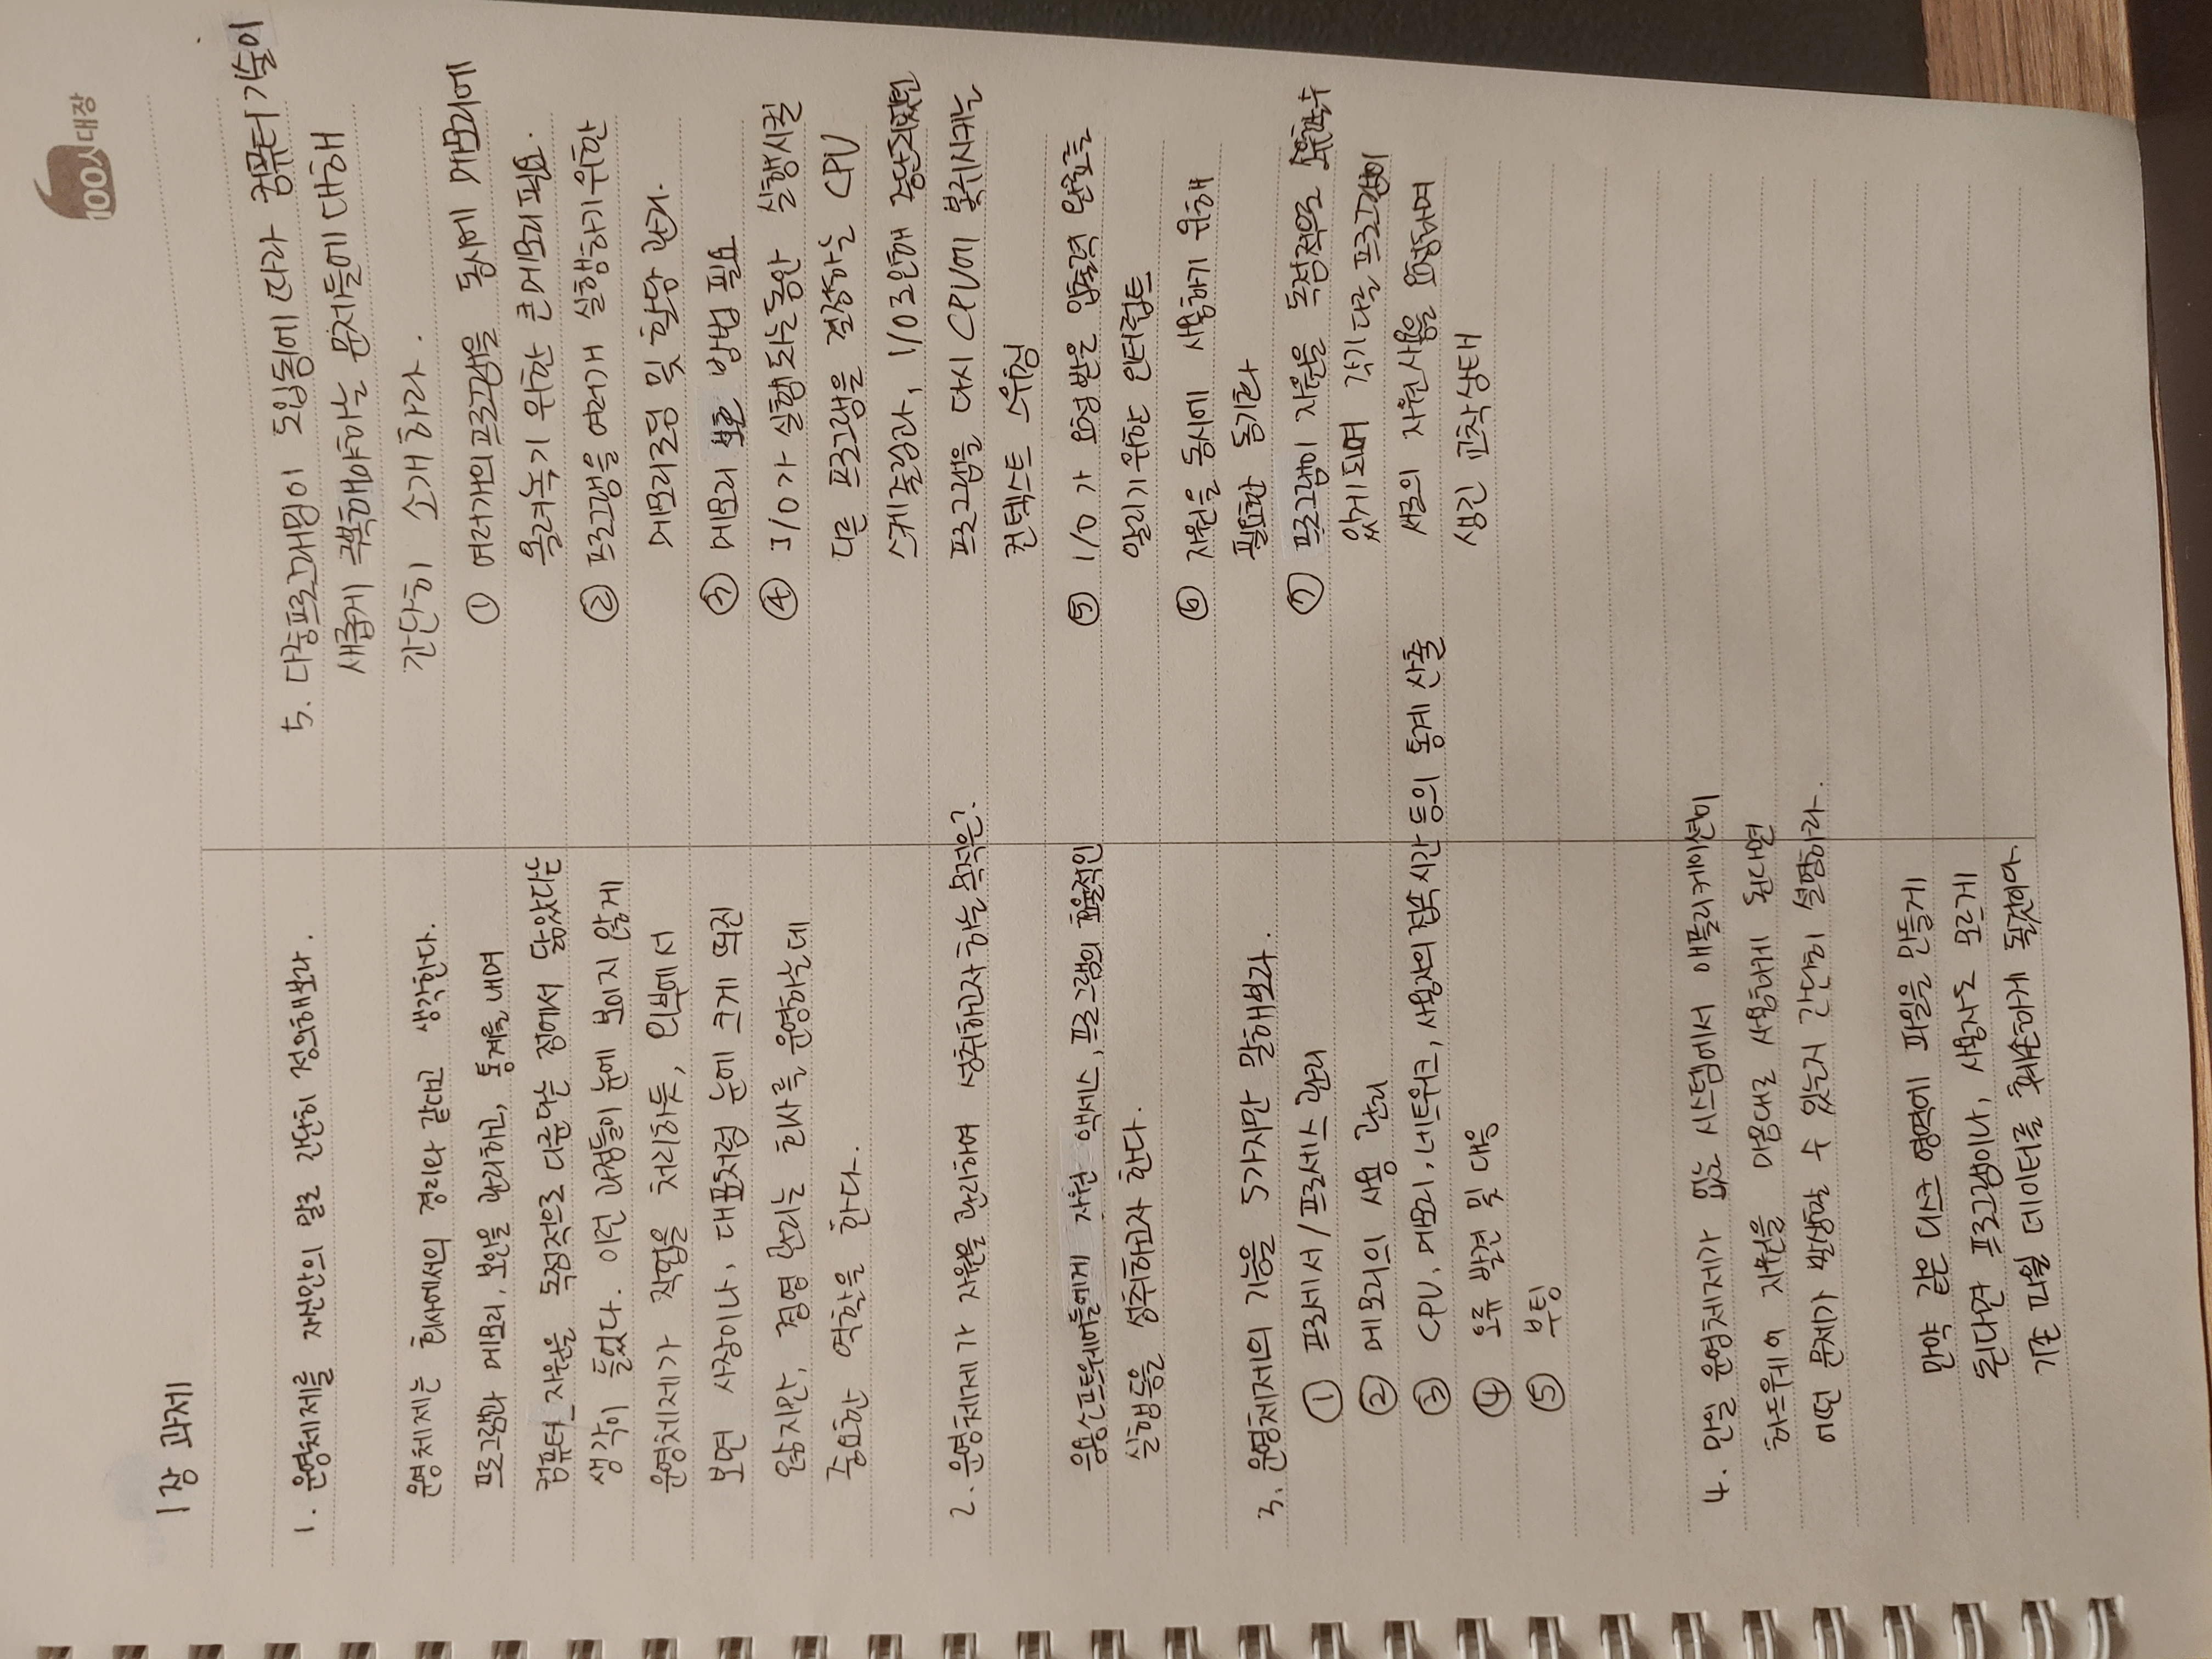 100人대장
1장 과제
1. 운영체제를 자신만의 말로 간단히 정의해보라.
운영체제는 회사에서의 경리와 같다고 생각한다.
프로그램과 메모리, 보안을 관리하고, 통계를 내며
컴퓨터 자원을 독점적으로 다룬다는 점에서 닮았다는
생각이 들었다. 이런 과정들이 눈에 보이지 않게
운영체제가 작업을 처리하듯, 외부에서
보면 사장이나, 대표처럼 눈에 크게 띄진
않지만, 경영 관리는 회사를 운영하는데
중요한 역할을 한다.
2. 운영체제가 자원을 관리하여 성취하고자 하는 목적은?
응용소프트웨어들에게 자원 액세스, 프로그램의 효율적인
실행등을 성취하고자 한다.
3. 운영체제의 기능을 5가지만 말해보라.
① 프로세서/프로세스 관리
② 메모리의 사용 관리
③ CPU, 메모리, 네트워크, 사용자의 접속 시간 등의 통계 산출
④ 오류 발견 및 대응
⑤ 부팅
4. 만일 운영체제가 없는 시스템에서 애플리케이션이
하드웨어 자원을 마음대로 사용하게 된다면
어떤 문제가 발생할 수 있는지 간단히 설명하라.
만약 같은 디스크 영역에 파일을 만들게
된다면 프로그램이나, 사용자도 모르게
기존 파일 데이터를 훼손하게 될것이다.
5. 다중프로그래밍이 도입됨에 따라 컴퓨터 기술이
새롭게 극복해야하는 문제들에 대해
간단히 소개하라.
① 여러개의 프로그램을 동시에 메모리에
올려놓기 위한 큰메모리 필요.
② 프로그램을 여러개 실행하기위한
메모리로딩 및 할당 관리.
③ 메모리 보호 방법 필요
④ I/O가 실행되는동안 실행시킬
다른 프로그램을 결정하는 CPU
스케줄링과, I/O로인해 중단되었던
프로그램을 다시 CPU에 복귀시키는
컨텍스트 스위칭
⑤ I/O가 요청받은 입출력 완료를
알리기위한 인터럽트
⑥ 자원을 동시에 사용하기 위해
필요한 동기화
⑦ 프로그램이 자원을 독점적으로 소유할수
있게되며 각기 다른 프로그램이
서로의 자원사용을 요청하며
생긴 교착상태